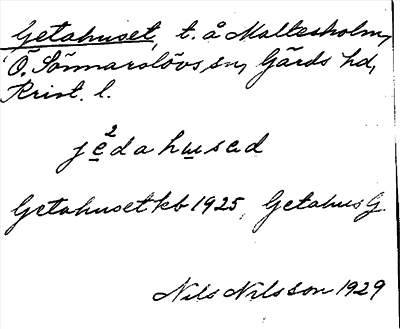 Getahuset, t. å Maltesholm,
Ö. Sönnarslövs sn, Gärds hd,
Krist. l.
je²dahusad
Getahuset kb 1925, Getahus G.
Nils Nilsson 1929